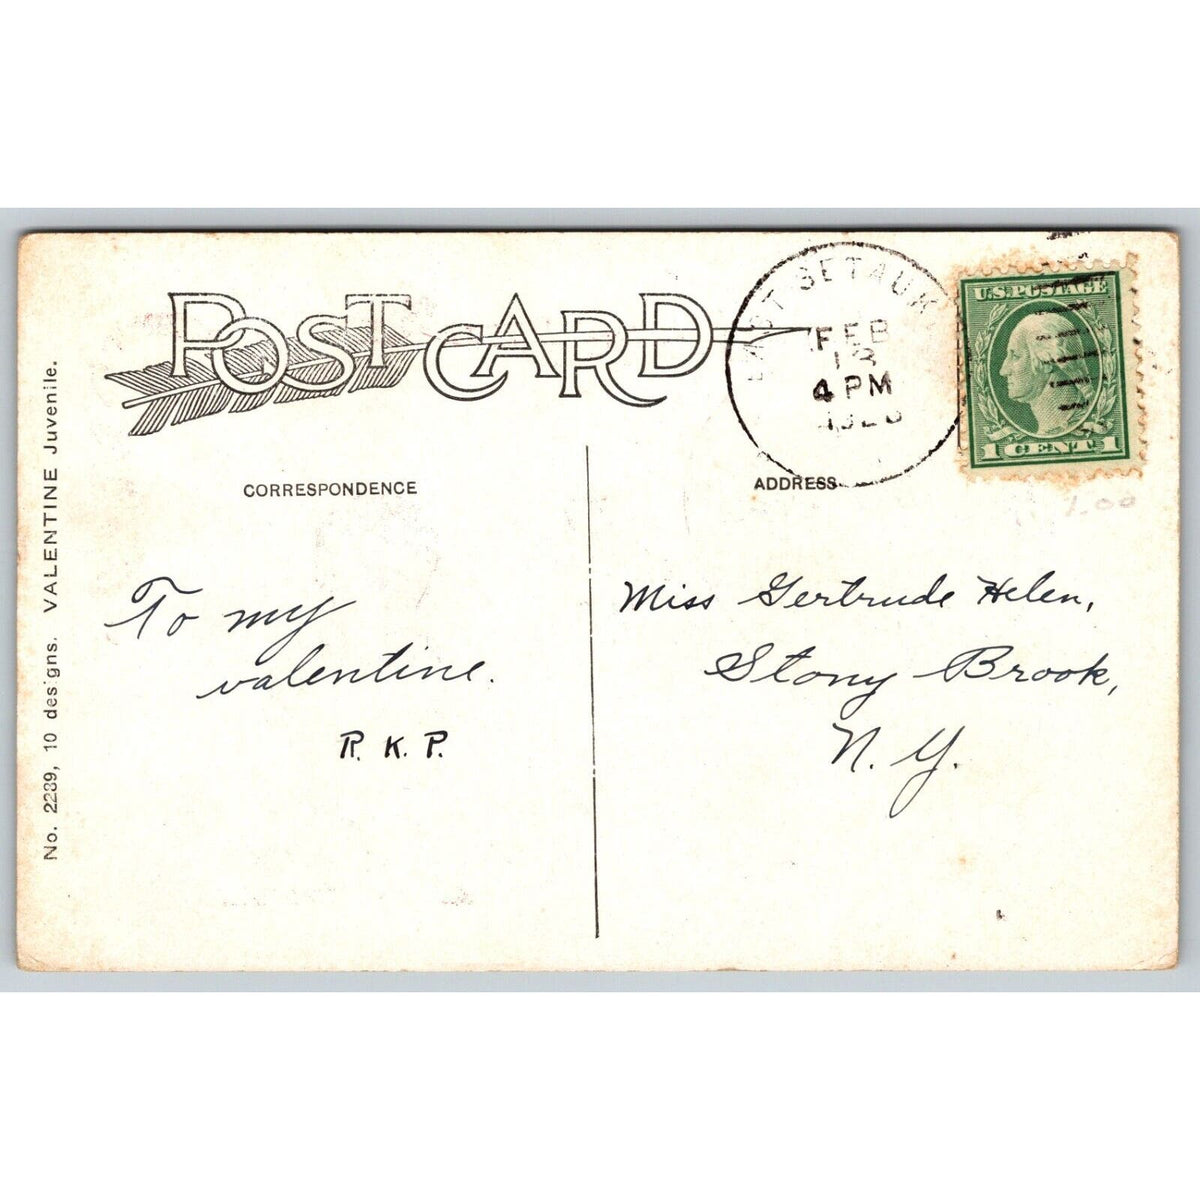 POST CARD
EAST SETAUK
FEB
13
4 PM
U.S. POSTAGE
1 CENT 1
1.00
CORRESPONDENCE
ADDRESS
To my
valentine.
R. K. P.
Miss Gertrude Helen,
Stony Brook,
N. Y.
No. 2239, 10 designs. VALENTINE Juvenile.